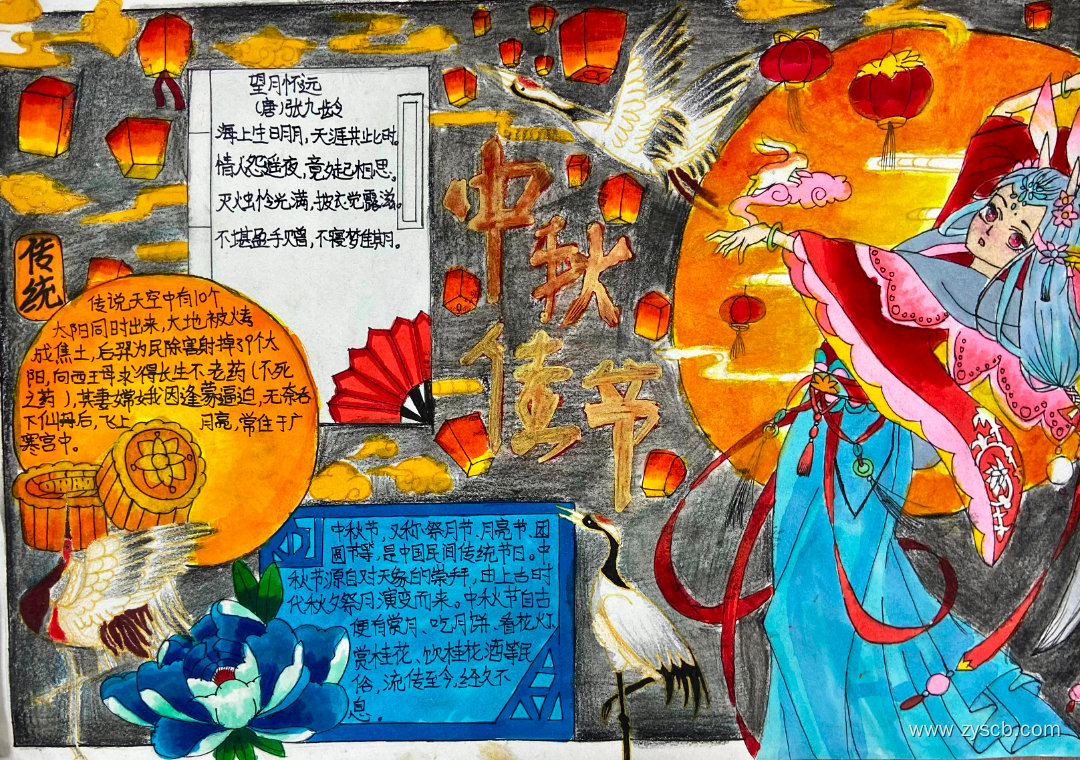 望月怀远
(唐)张九龄
海上生明月,天涯共此时。
情人怨遥夜,竟夕起相思。
灭烛怜光满,披衣觉露滋。
不堪盈手赠,不寝梦佳期。
中秋
佳节
传统
传说天空中有10个
太阳同时出来,大地被烤
成焦土,后羿为民除害射掉39个太
阳,向西王母求得长生不老药(不死
之药),其妻嫦娥因逢蒙逼迫,无奈吞
下仙丹后,飞上月亮,常住于广
寒宫中。
中秋节,又称祭月节、月亮节、团
圆节等,是中国民间传统节日。中
秋节源自对天象的崇拜,由上古时
代秋夕祭月演变而来。中秋节自古
便有赏月、吃月饼、看花灯、
赏桂花、饮桂花酒等民
俗,流传至今,经久不
息。
www.zyscb.com